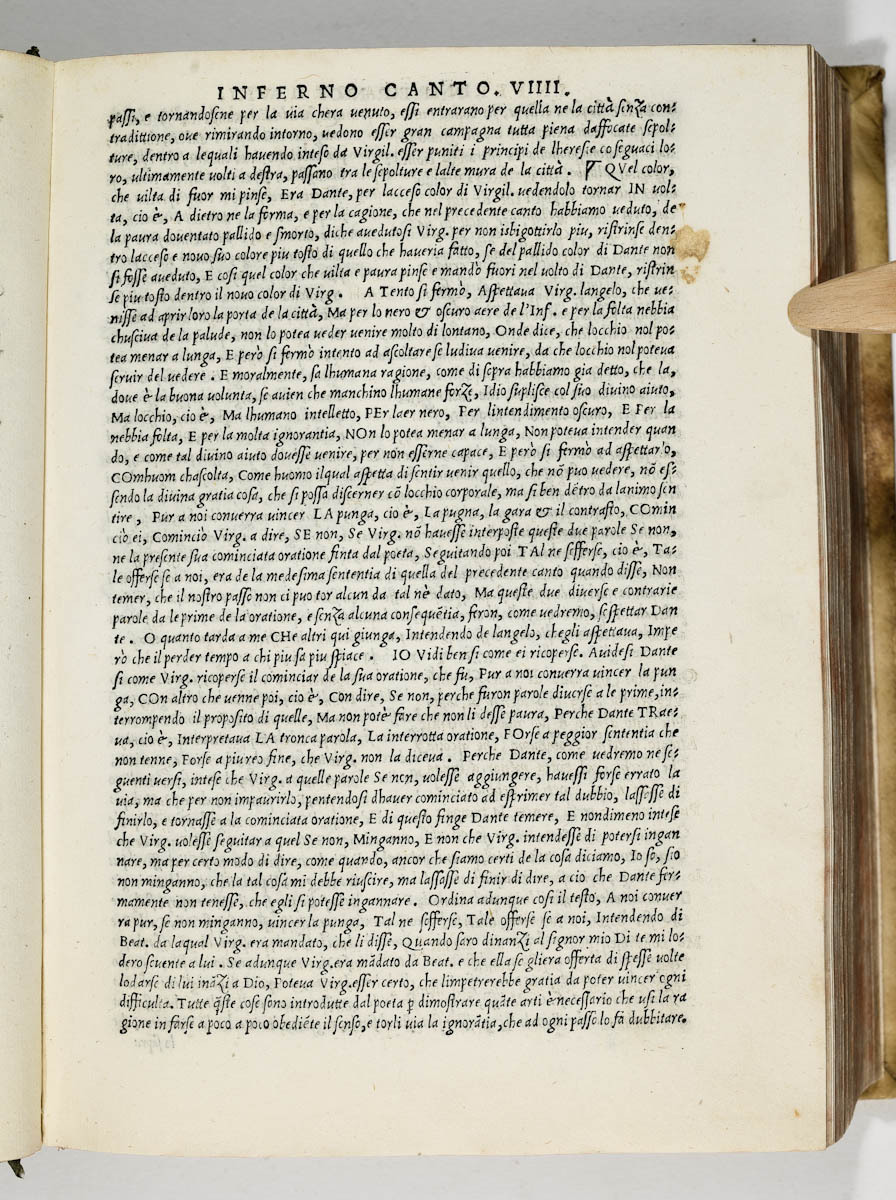 INFERNO CANTO. VIIII.
passi, e tornandosene per la uia chera uenuto, essi entrarano per quella ne la città senza con-
tradittione, oue rimirando intorno, uedono esser gran campagna tutta piena daffocate sepol-
ture, dentro a lequali hauendo inteso da Virgil. esser puniti i principi de lheresie co seguaci lo-
ro, ultimamente uolti a destra, passano tra le sepolture e lalte mura de la città. ¶ QVel color,
che uilta di fuor mi pinse, Era Dante, per lacceso color di Virgil. uedendolo tornar IN uol-
ta, cio è, A dietro ne la forma, e per la cagione, che nel precedente canto habbiamo ueduto, de
la paura douentato pallido e smorto, diche auedutosi Virg. per non isbigottirlo piu, ristrinse den-
tro lacceso e nouo suo colore piu tosto di quello che haueria fatto, se del pallido color di Dante non
si fosse aueduto, E cosi quel color che uilta e paura pinse e mandò fuori nel uolto di Dante, ristrin
se piu tosto dentro il nouo color di Virg. A Tento si fermò, Aspettaua Virg. langelo, che ue-
nisse ad aprir loro la porta de la città, Ma per lo nero & oscuro aere de l'Inf. e per la folta nebbia
chusciua de la palude, non lo potea ueder uenire molto di lontano, Onde dice, che locchio nol po-
tea menar a lunga, E però si fermò intento ad ascoltare se ludiua uenire, da che locchio nol poteua
seruir del uedere. E moralmente, sa lhumana ragione, come di sopra habbiamo gia detto, che la,
doue è la buona uolunta, se auien che manchino lhumane forze, Idio suplisce col suo diuino aiuto,
Ma locchio, cio è, Ma lhumano intelletto, PEr laer nero, Per lintendimento oscuro, E Per la
nebbia folta, E per la molta ignorantia, NOn lo potea menar a lunga, Non poteua intender quan
do, e come tal diuino aiuto douesse uenire, per non esserne capace, E però si fermò ad aspettarlo,
COmhuom chascolta, Come huomo ilqual aspetta di sentir uenir quello, che nõ puo uedere, nõ es-
sendo la diuina gratia cosa, che si possa discerner cõ locchio corporale, ma si ben dẽtro da lanimo sen
tire, Pur a noi conuerra uincer LA punga, cio è, La pugna, la gara & il contrasto, COmin
ciò ei, Cominciò Virg. a dire, SE non, Se Virg. nõ hauesse interposte queste due parole Se non,
ne la presente sua cominciata oratione finta dal poeta, Seguitando poi TAl ne sefferse, cio è, Ta-
le offerse se a noi, era de la medesima sententia di quella del precedente canto quando disse, Non
temer, che il nostro passo non ci puo tor alcun da tal nè dato, Ma queste due diuerse e contrarie
parole da le prime de la oratione, e senza alcuna consequẽtia, feron, come uedremo, sespettar Dan
te. O quanto tarda a me CHe altri qui giunga, Intendendo de langelo, chegli aspettaua, Impe
rò che il perder tempo a chi piu sa piu spiace. IO Vidi ben si come ei ricoperse. Auidesi Dante
si come Virg. ricoperse il cominciar de la sua oratione, che fu, Pur a noi conuerra uincer la pun
ga, COn altro che uenne poi, cio è, Con dire, Se non, perche furon parole diuerse a le prime, in-
terrompendo il proposito di quelle, Ma non potè fare che non li desse paura, Perche Dante TRae-
ua, cio è, Interpretaua LA tronca parola, La interrotta oratione, FOrse a peggior sententia che
non tenne, Forse a piu reo fine, che Virg. non la diceua. Perche Dante, come uedremo ne se-
guenti uersi, intese che Virg. a quelle parole Se non, uolesse aggiungere, hauessi forse errato la
uia, ma che per non impaurirlo, pentendosi dhauer cominciato ad esprimer tal dubbio, lassesse di
finirlo, e tornasse a la cominciata oratione, E di questo finge Dante temere, E nondimeno intese
che Virg. uolesse seguitar a quel Se non, Minganno, E non che Virg. intendesse di potersi ingan
nare, ma per certo modo di dire, come quando, ancor che siamo certi de la cosa diciamo, Io so, sio
non minganno, che la tal cosa mi debbe riuscire, ma lassasse di finir di dire, a cio che Dante fer-
mamente non tenesse, che egli si potesse ingannare. Ordina adunque cosi il testo, A noi conuer
ra pur, se non minganno, uincer la punga, Tal ne sefferse, Tale offerse se a noi, Intendendo di
Beat. da laqual Virg. era mandato, che li disse, Quando saro dinanzi al signor mio Di te mi lo-
dero souente a lui. Se adunque Virg. era mãdato da Beat. e che ella se gliera offerta di spesse uolte
lodarse di lui inãzi a Dio, Poteua Virg. esser certo, che limpetrerebbe gratia da poter uincer ogni
difficulta. Tutte q̃ste cose sono introdutte dal poeta p dimostrare quãte arti è necessario che usi la ra
gione in farse a poco a poco obediẽte il senso, e torli uia la ignorãtia, che ad ogni passo lo fa dubbitare.